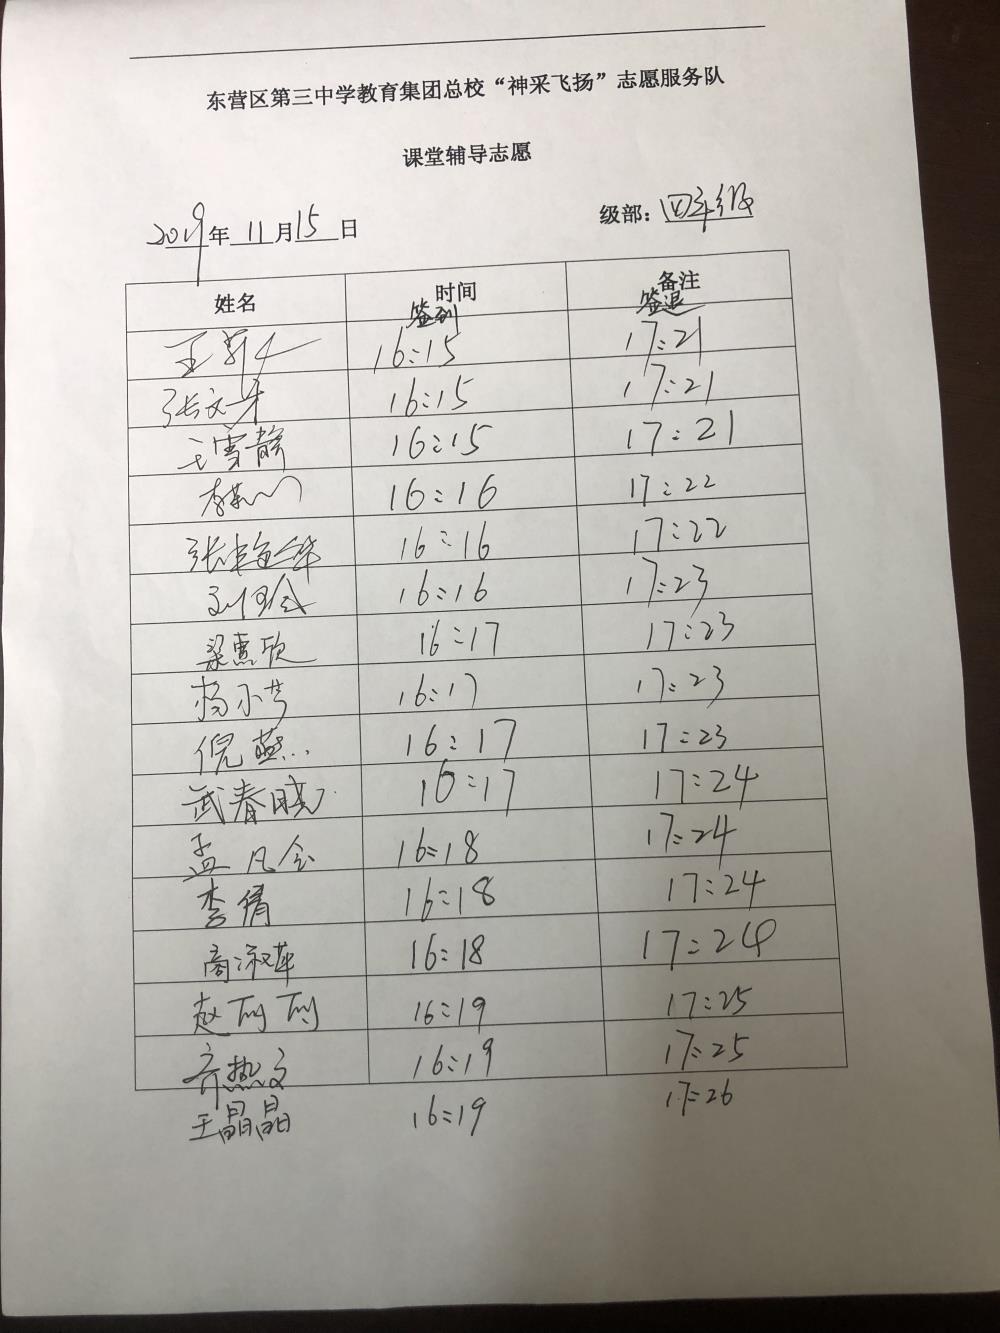 东营区第三中学教育集团总校“神采飞扬”志愿服务队
课堂辅导志愿
2019年11月15日 级部：四年级
姓名 时间 备注
签到 签退
16:15 17:21
张文 16:15 17:21
王雪静 16:15 17:21
李 16:16 17:22
张 16:16 17:22
刘 16:16 17:23
梁惠欣 16:17 17:23
杨小芳 16:17 17:23
倪燕 16:17 17:23
武春晓 16:17 17:24
孟凡会 16:18 17:24
李倩 16:18 17:24
商淑苹 16:18 17:24
赵丽丽 16:19 17:25
齐热文 16:19 17:25
王晶晶 16:19 17:26